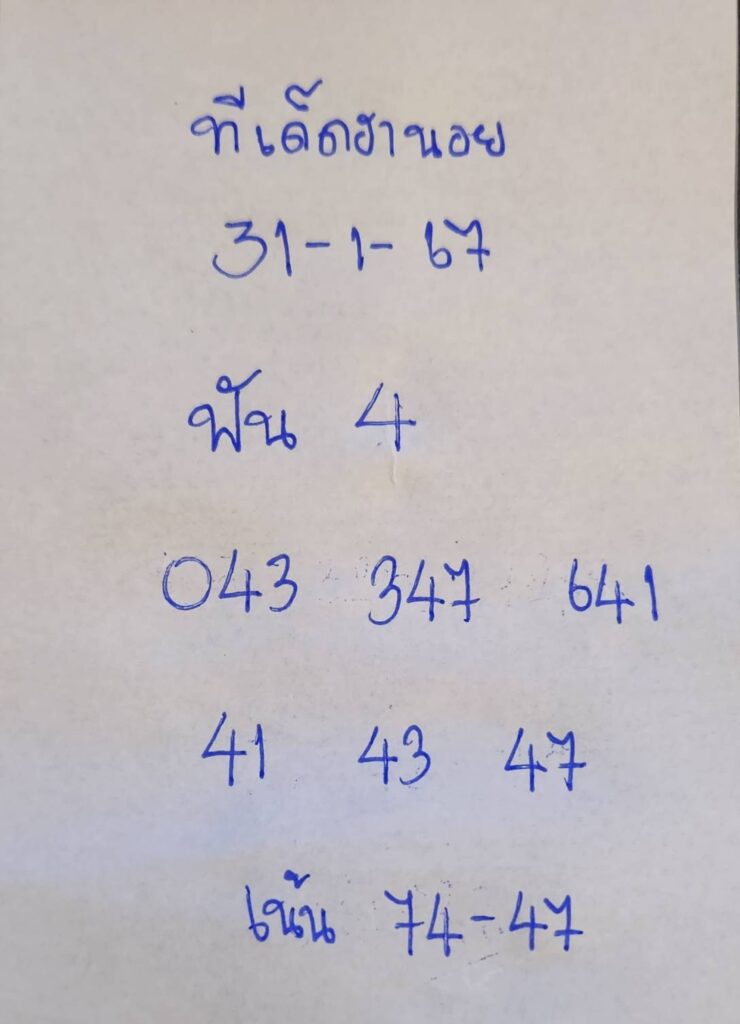 ทีเด็ดฮานอย
31-1-67
ฟัน 4
043 347 641
41 43 47
เน้น 74-47